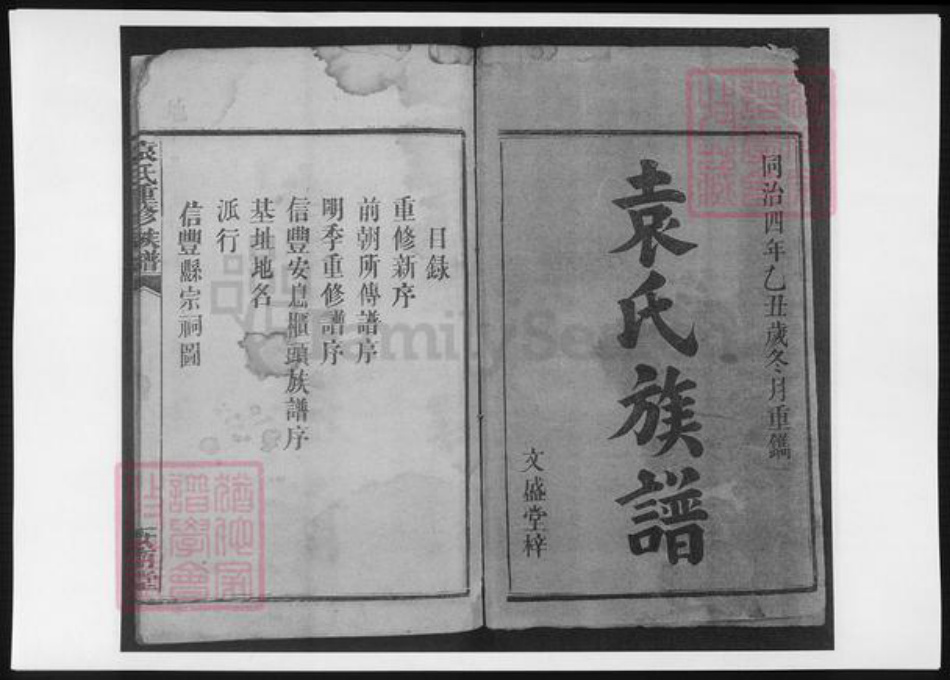 同治四年乙丑歲冬月重鐫
袁氏族譜
文盛堂梓
目録
重修新序
前朝所傳譜序
明季重修譜序
信豐安息壩頭族譜序
基址地名
派行
信豐縣宗祠圖
袁氏重修族譜
FamilySearch